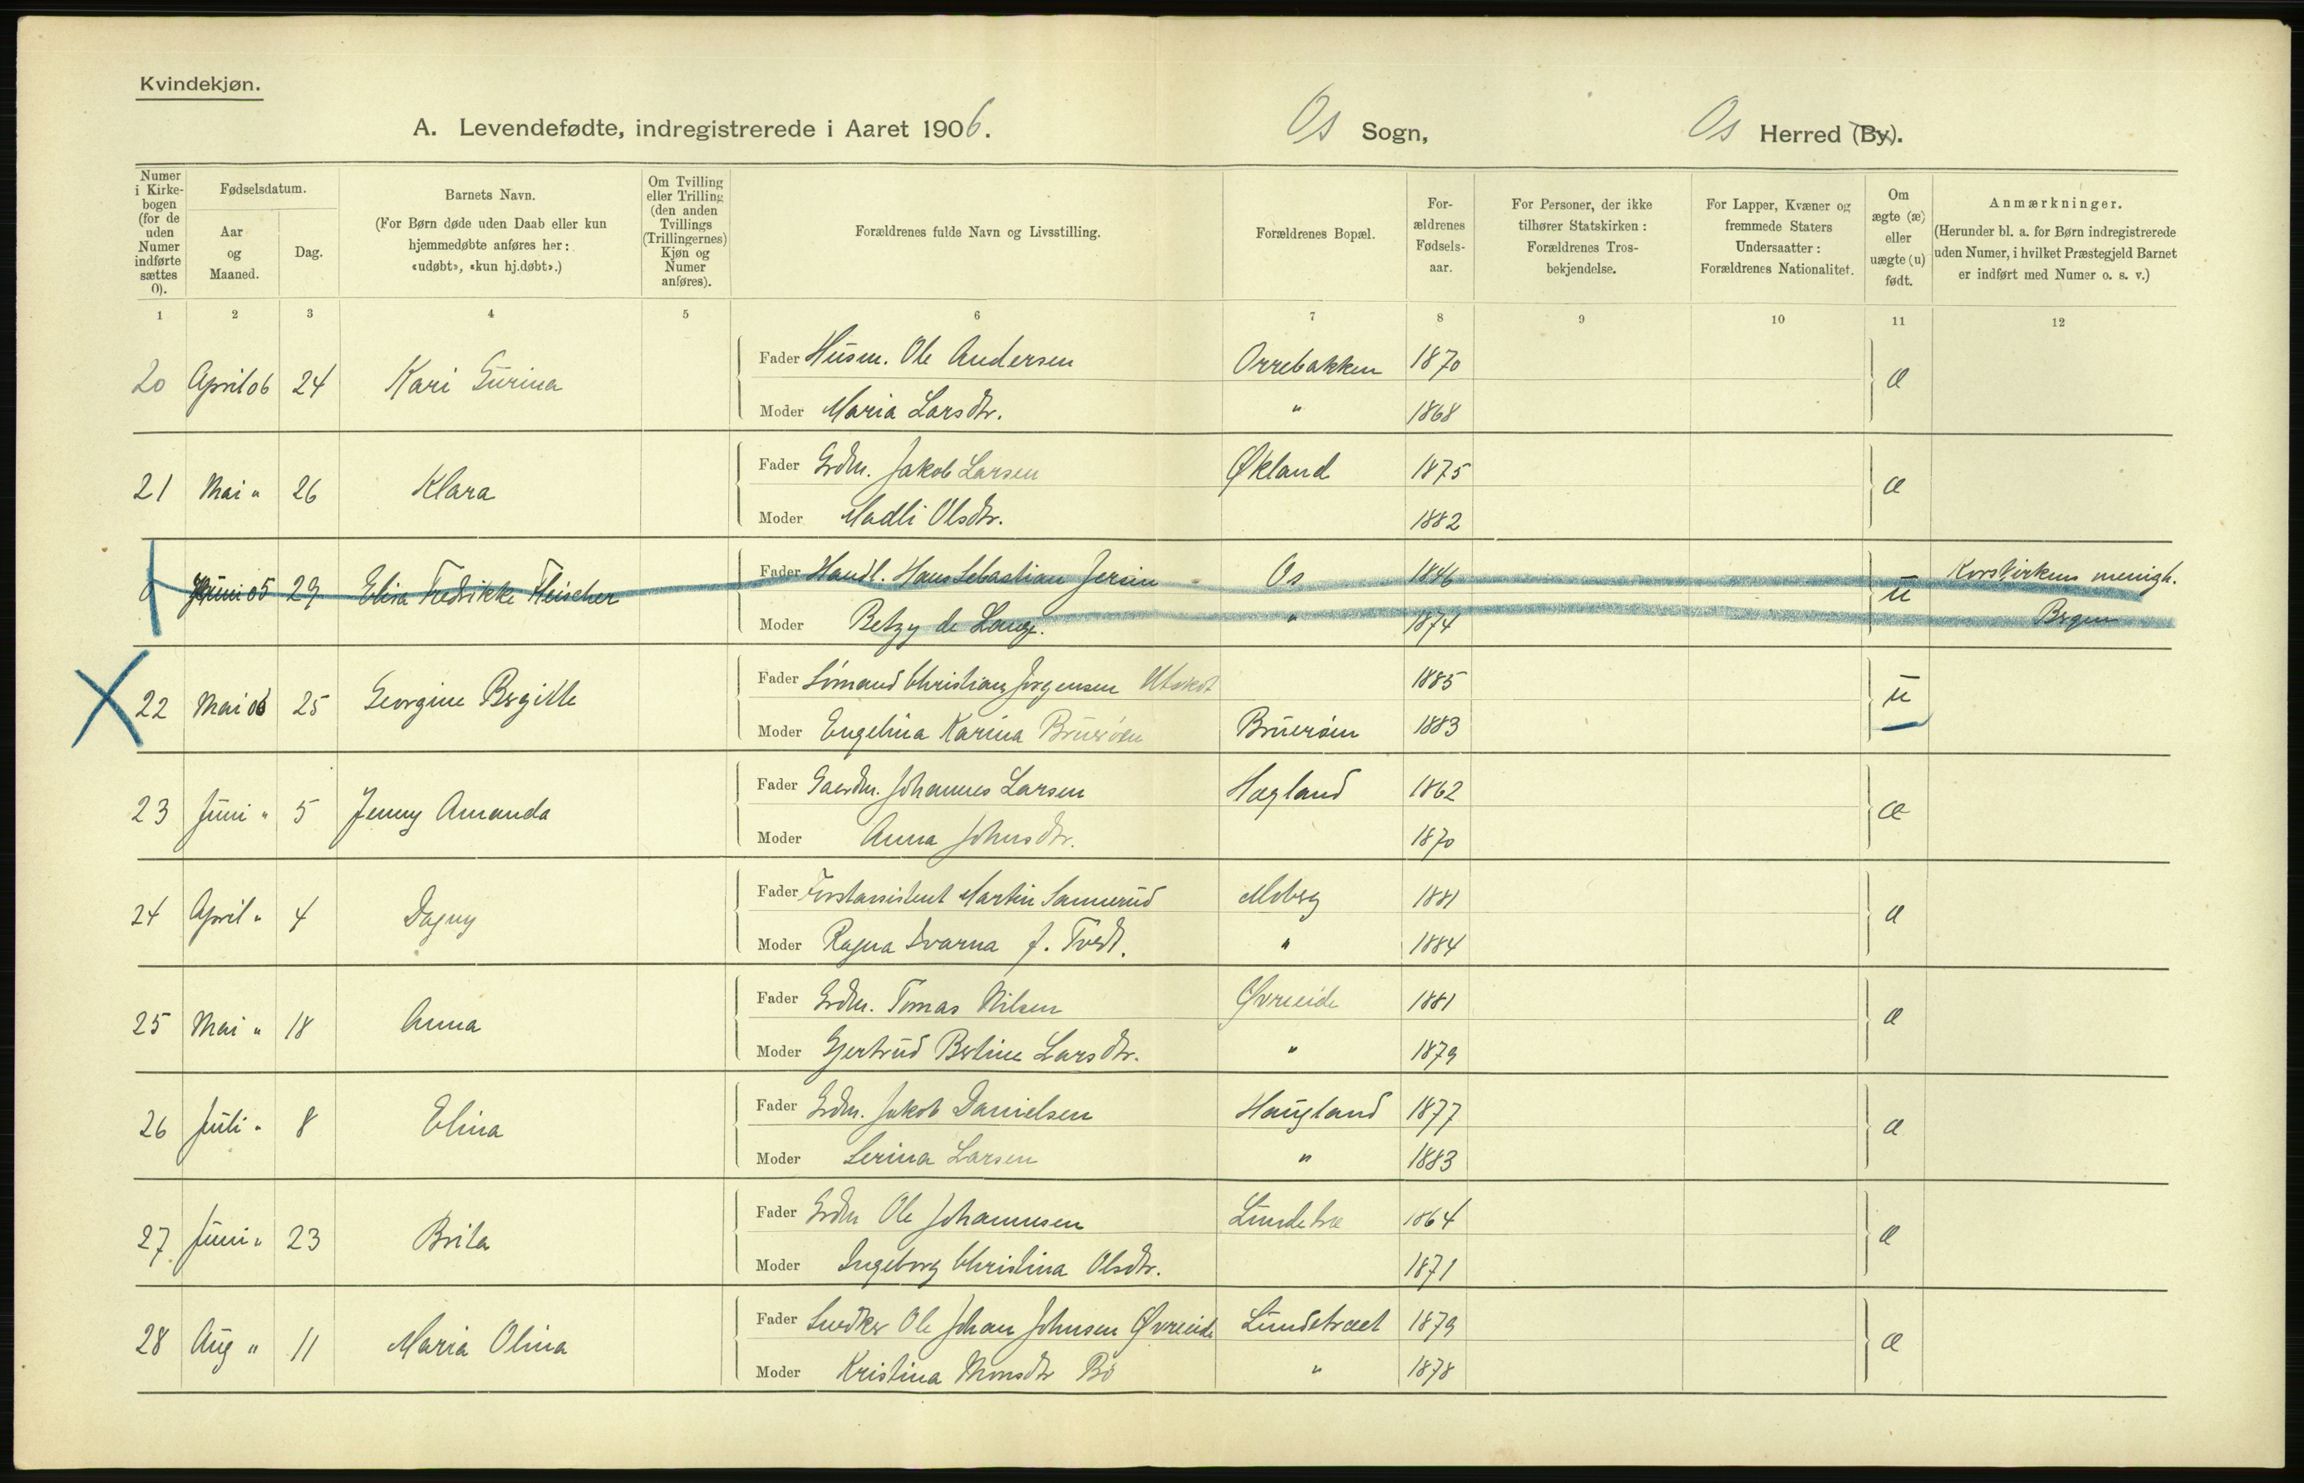 Kvindekjøn.
A. Levendefødte, indregistrerede i Aaret 1906. Os Sogn, Os Herred (By).
Numer i Kirkebogen (for de uden Numer indførte sættes 0).
Fødselsdatum.
Aar og Maaned.
Dag.
Barnets Navn.
(For Børn døde uden Daab eller kun hjemmedøbte anføres her: «udøbt», «kun hj.døbt».)
Om Tvilling eller Trilling (den anden Tvillings (Trillingernes) Kjøn og Numer anføres).
Forældrenes fulde Navn og Livsstilling.
Forældrenes Bopæl.
Forældrenes Fødselsaar.
For Personer, der ikke tilhører Statskirken: Forældrenes Trosbekjendelse.
For Lapper, Kvæner og fremmede Staters Undersaatter: Forældrenes Nationalitet.
Om ægte (æ) eller uægte (u) født.
Anmærkninger.
(Herunder bl. a. for Børn indregistrerede uden Numer, i hvilket Præstegjeld Barnet er indført med Numer o. s. v.)
1 2 3 4 5 6 7 8 9 10 11 12
20 April 06 24 Kari Gurina Fader Husm. Ole Andersen Orrebakken 1870 æ
Moder Maria Larsdtr. " 1868
21 Mai " 26 Klara Fader Grdm. Jakob Larsen Økland 1875 æ
Moder Madli Olsdtr. 1882
0 Juni 05 29 Elisa Fredrikke Fleischer Fader Handl. Hans Sebastian Jersin Os 1846 u Korskirkens menigh.
Moder Betzy de Lange. " 1874 Bergen
22 Mai 06 25 Georgine Bergitte Fader Sömand Christian Jørgensen 1885 u
Moder Engelina Karina Bruerøen Bruerøen 1883
23 Juni " 5 Jenny Amanda Fader Gaardm. Johannes Larsen Hagland 1862 æ
Moder Anna Johnsdtr. 1870
24 April " 4 Dagny Fader Forstassistent Martin Sannerud Moberg 1881 æ
Moder Ragna Svarna f. Tvedt. " 1884
25 Mai " 18 Anna Fader Grdm. Tomas Nilsen Øvreeide 1881 æ
Moder Gjertrud Bertine Larsdtr. " 1879
26 Juli " 8 Elina Fader Grdm. Jakob Danielsen Haugland 1877 æ
Moder Serina Larsen " 1883
27 Juni " 23 Brita Fader Grdm Ole Johannesen Lundetræ 1864 æ
Moder Ingeborg Christina Olsdtr. 1871
28 Aug " 11 Maria Olina Fader Snedker Ole Johan Johnsen Øvreeide Lundetræet 1879 æ
Moder Kristina Monsdtr Bö " 1878